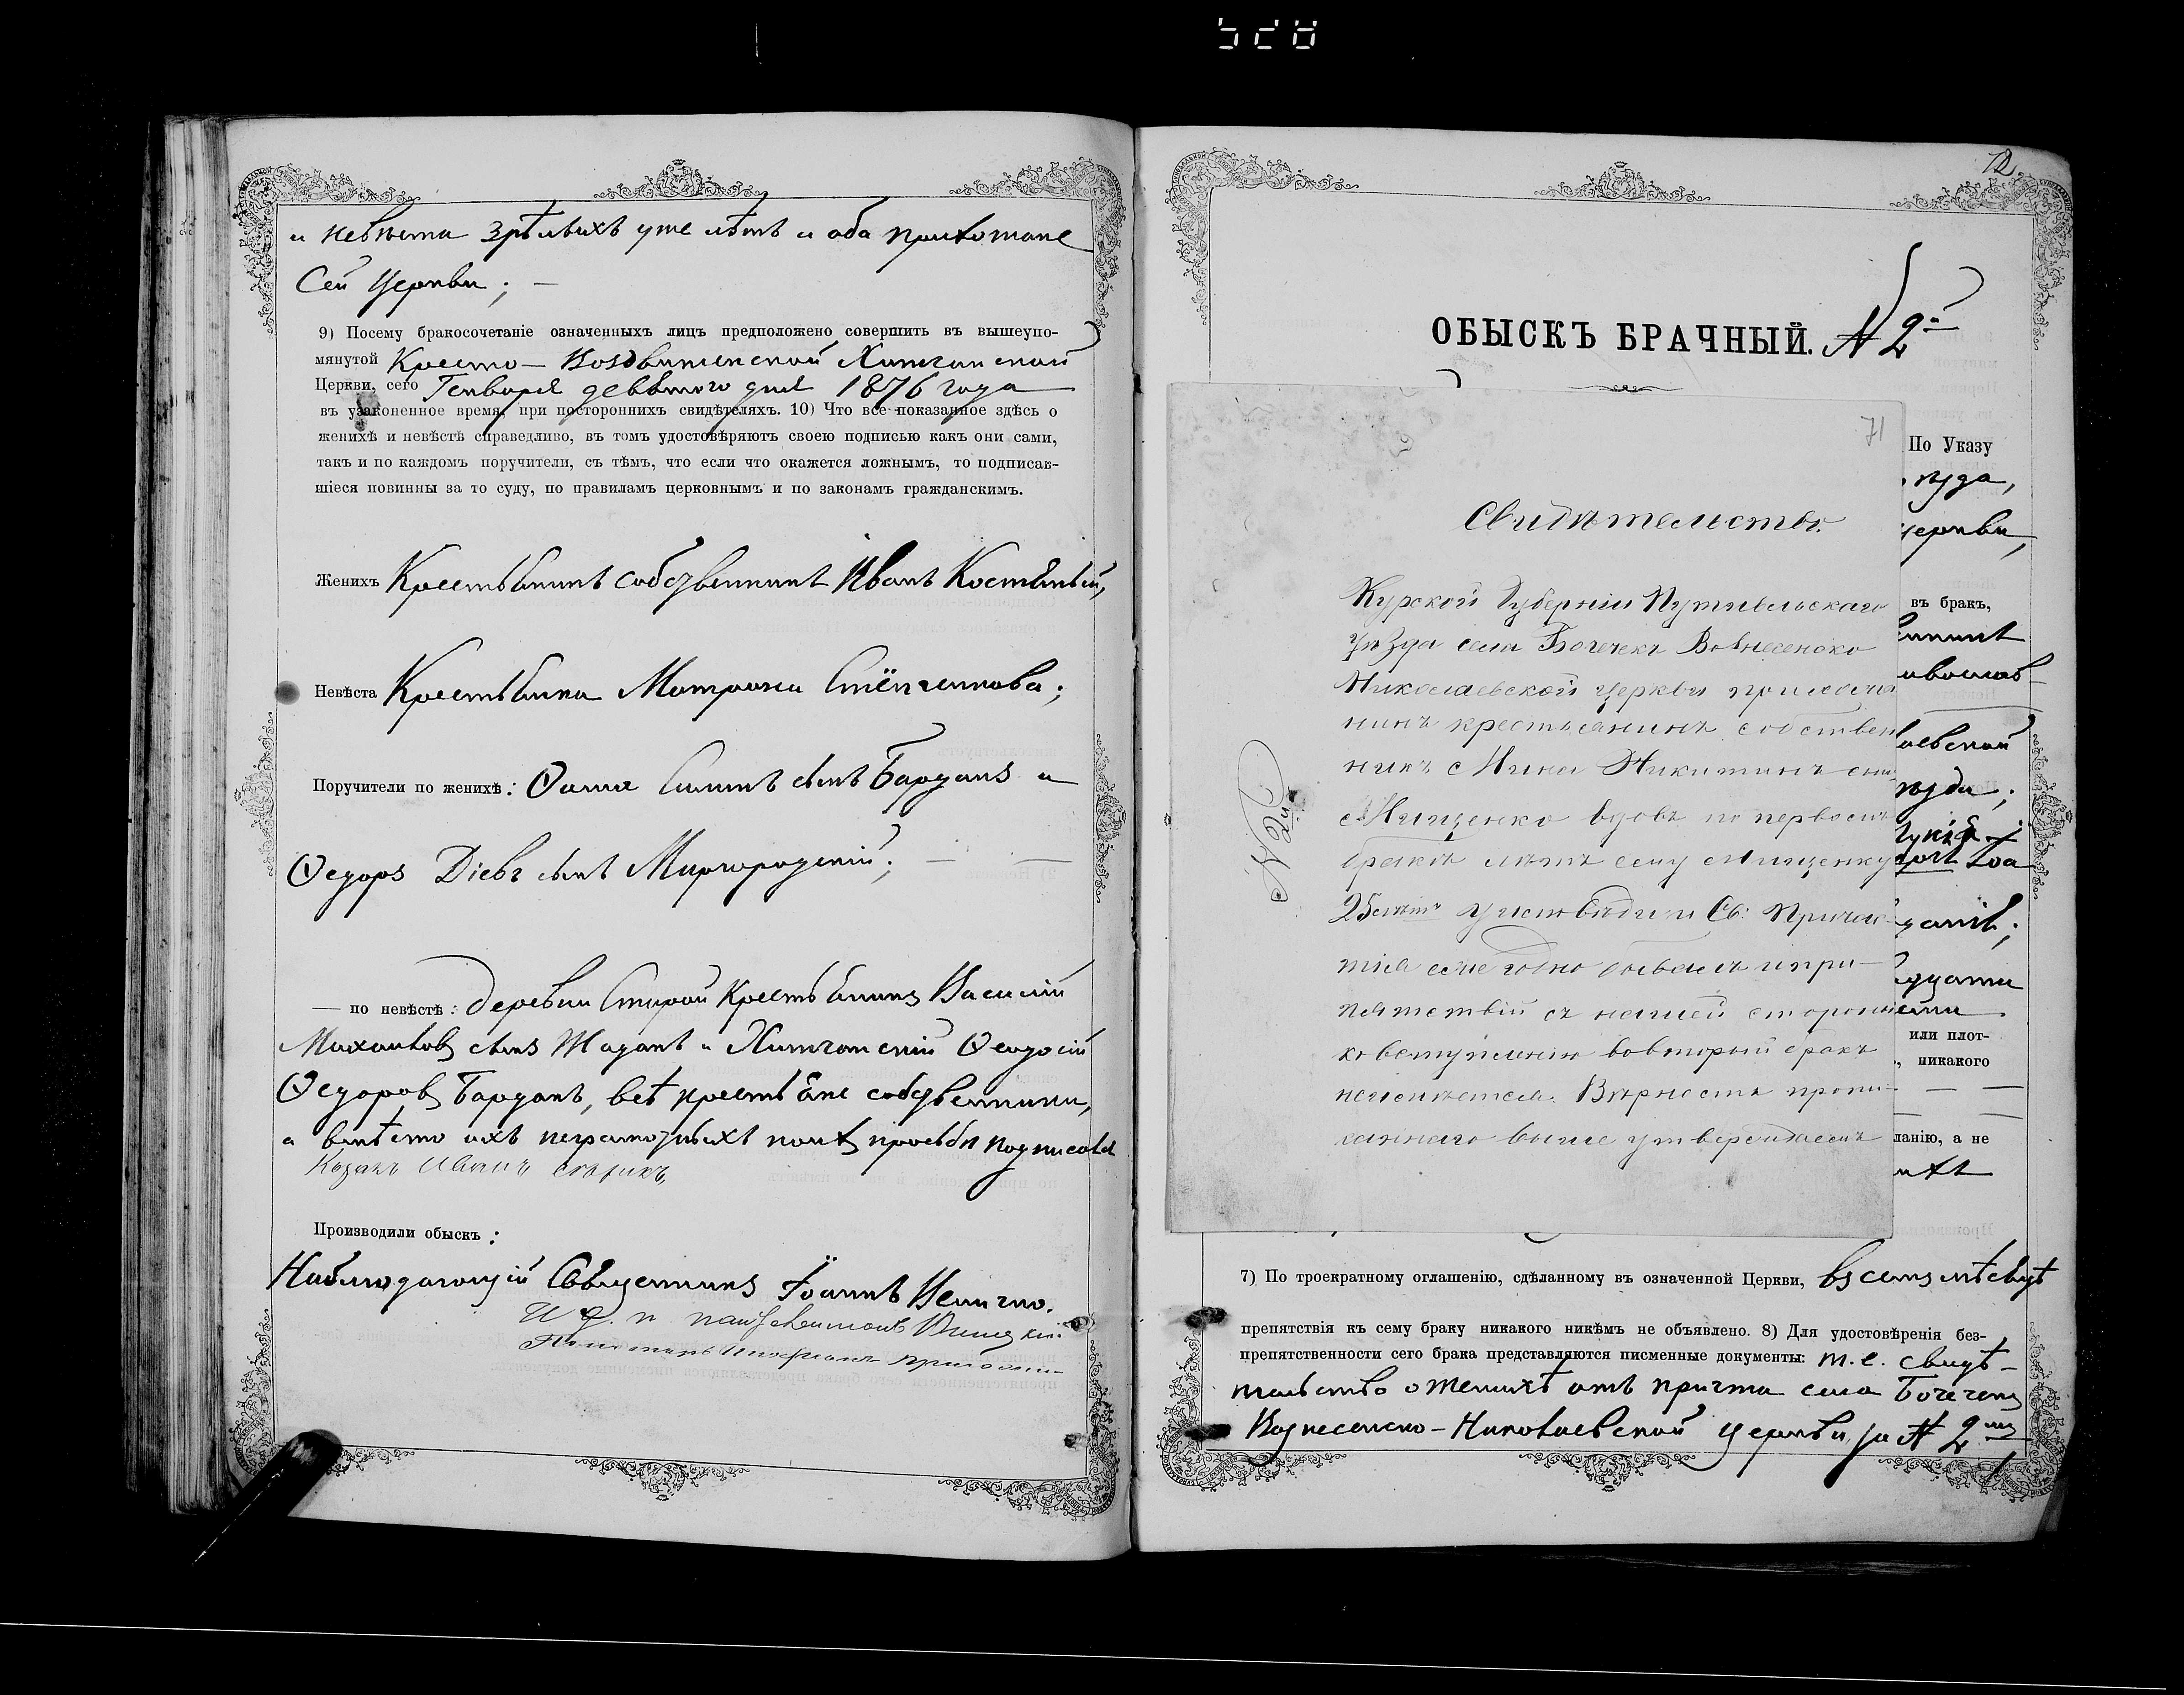 и невѣста зрѣлыхъ уже лѣтъ и оба прихожане
Сей Церкви; —
9) Посему бракосочетаніе означенныхъ лицъ предположено совершить въ вышеупо-
мянутой Кресто-Воздвиженской Хижчанской
Церкви, сего Генваря девятого дня 1876 года
въ узаконенное время, при постороннихъ свидѣтеляхъ. 10) Что все показанное здѣсь о
женихѣ и невѣстѣ справедливо, въ томъ удостовѣряютъ своею подписью какъ они сами,
такъ и по каждомъ поручители, съ тѣмъ, что если что окажется ложнымъ, то подписав-
шіеся повинны за то суду, по правиламъ церковнымъ и по законамъ гражданскимъ.
Женихъ Крестьянинъ собственникъ Иванъ Костяный,
Невѣста Крестьянка Матрона
Поручители по женихѣ: сынъ Барданъ и
Ѳедоръ Діевъ сынъ Миргородскій; —
— по невѣстѣ: деревни Старой Крестьянинъ Василій
Михайловъ сынъ Жаданъ и Хижчанскій Ѳеодосій
Ѳедоровъ Барданъ, всѣ крестьяне собственники,
а вмѣсто ихъ неграмотныхъ по ихъ просьбѣ подписался
Козакъ Иванъ
Производили обыскъ:
Наблюдающій Священникъ Іоаннъ Величко.
И. д. п
Пономарь
12
ОБЫСКЪ БРАЧНЫЙ. № 2й
71
Свидѣтельство.
Курской Губерніи Путивльскаго
уѣзда села Бочечекъ Вознесенско
Николаевской церкви прихожа
нинъ крестьянинъ собствен
никъ Мина Никитинъ сынъ
Мищенко вдовъ по первомъ
бракѣ лѣтъ ему Мищенку
25 лѣтъ у исповѣди и Св: Причас-
тія ежегодно бывалъ и пре-
пятствій съ нашей стороны
ко вступленію во вторый бракъ
неимѣется. Вѣрность пропи-
саннаго выше утверждаемъ
№ 2й
По Указу
уѣзда,
церкви,
въ бракъ,
или плот-
никакого
ланію, а не
7) По троекратному оглашенію, сдѣланному въ означенной Церкви, въ семъ мѣсяцѣ
препятствія къ сему браку никакого никѣмъ не объявлено. 8) Для удостовѣренія без-
препятственности сего брака представляются писменные документы: т. е. свидѣ-
тельство о женихѣ отъ причта села Бочечекъ
Вознесенско-Николаевской церкви, за № 2мъ